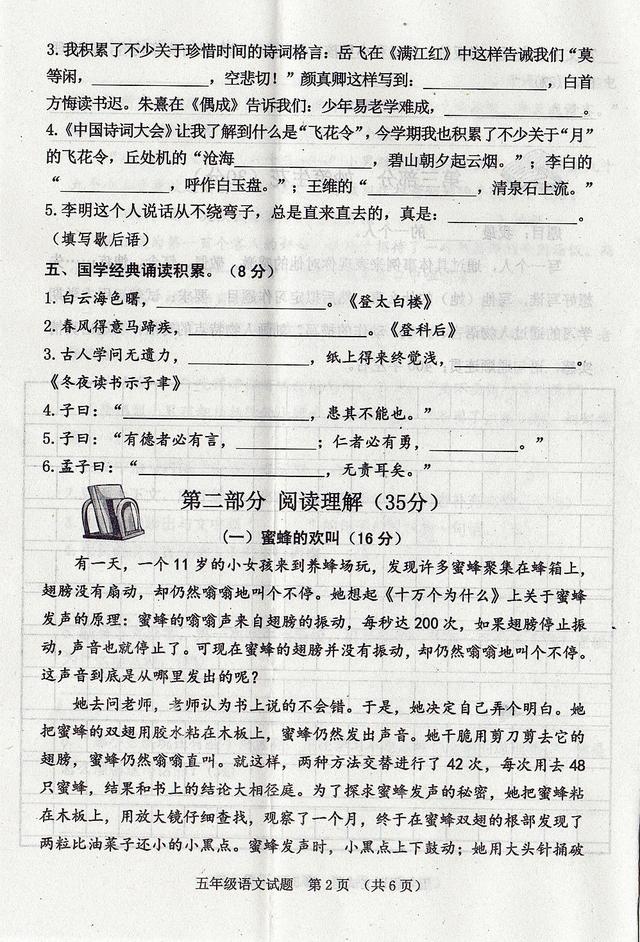 3.我积累了不少关于珍惜时间的诗词格言：岳飞在《满江红》中这样告诫我们“莫
等闲，____________，空悲切！”颜真卿这样写到：____________，白首
方悔读书迟。朱熹在《偶成》告诉我们：少年易老学难成，____________。
4.《中国诗词大会》让我了解到什么是“飞花令”，今学期我也积累了不少关于“月”
的飞花令，丘处机的“沧海____________，碧山朝夕起云烟。”；李白的
“____________，呼作白玉盘。”；王维的“____________，清泉石上流。”
5.李明这个人说话从不绕弯子，总是直来直去的，真是：____________。
（填写歇后语）
五、国学经典诵读积累。（8分）
1.白云海色曙，____________。《登太白楼》
2.春风得意马蹄疾，____________。《登科后》
3.古人学问无遗力，____________，纸上得来终觉浅，____________。
《冬夜读书示子聿》
4.子曰：“____________，患其不能也。”
5.子曰：“有德者必有言，________；仁者必有勇，________。”
6.孟子曰：“____________，无责耳矣。”
第二部分 阅读理解（35分）
（一）蜜蜂的欢叫（16分）
有一天，一个11岁的小女孩来到养蜂场玩，发现许多蜜蜂聚集在蜂箱上，
翅膀没有扇动，却仍然嗡嗡地叫个不停。她想起《十万个为什么》上关于蜜蜂
发声的原理：蜜蜂的嗡嗡声来自翅膀的振动，每秒达200次，如果翅膀停止振
动，声音也就停止了。可现在蜜蜂的翅膀并没有振动，却仍然嗡嗡地叫个不停。
这声音到底是从哪里发出的呢？
她去问老师，老师认为书上说的不会错。于是，她决定自己弄个明白。她
把蜜蜂的双翅用胶水粘在木板上，蜜蜂仍然发出声音。她干脆用剪刀剪去它的
翅膀，蜜蜂仍然嗡嗡直叫。就这样，两种方法交替进行了42次，每次用去48
只蜜蜂，结果和书上的结论大相径庭。为了探求蜜蜂发声的秘密，她把蜜蜂粘
在木板上，用放大镜仔细查找，观察了一个月，终于在蜜蜂双翅的根部发现了
两粒比油菜子还小的小黑点。蜜蜂发声时，小黑点上下鼓动；她用大头针捅破
五年级语文试题 第2页 （共6页）